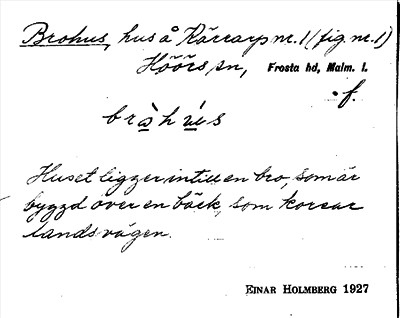 Brohus, hus å Kärrarp nr. 1 (fig. nr. 1)
Höörs sn, Frosta hd, Malm. l.
· f.
b r ò h ú s
Huset ligger intill en bro, som är
byggd över en bäck, som korsar
landsvägen.
EINAR HOLMBERG 1927